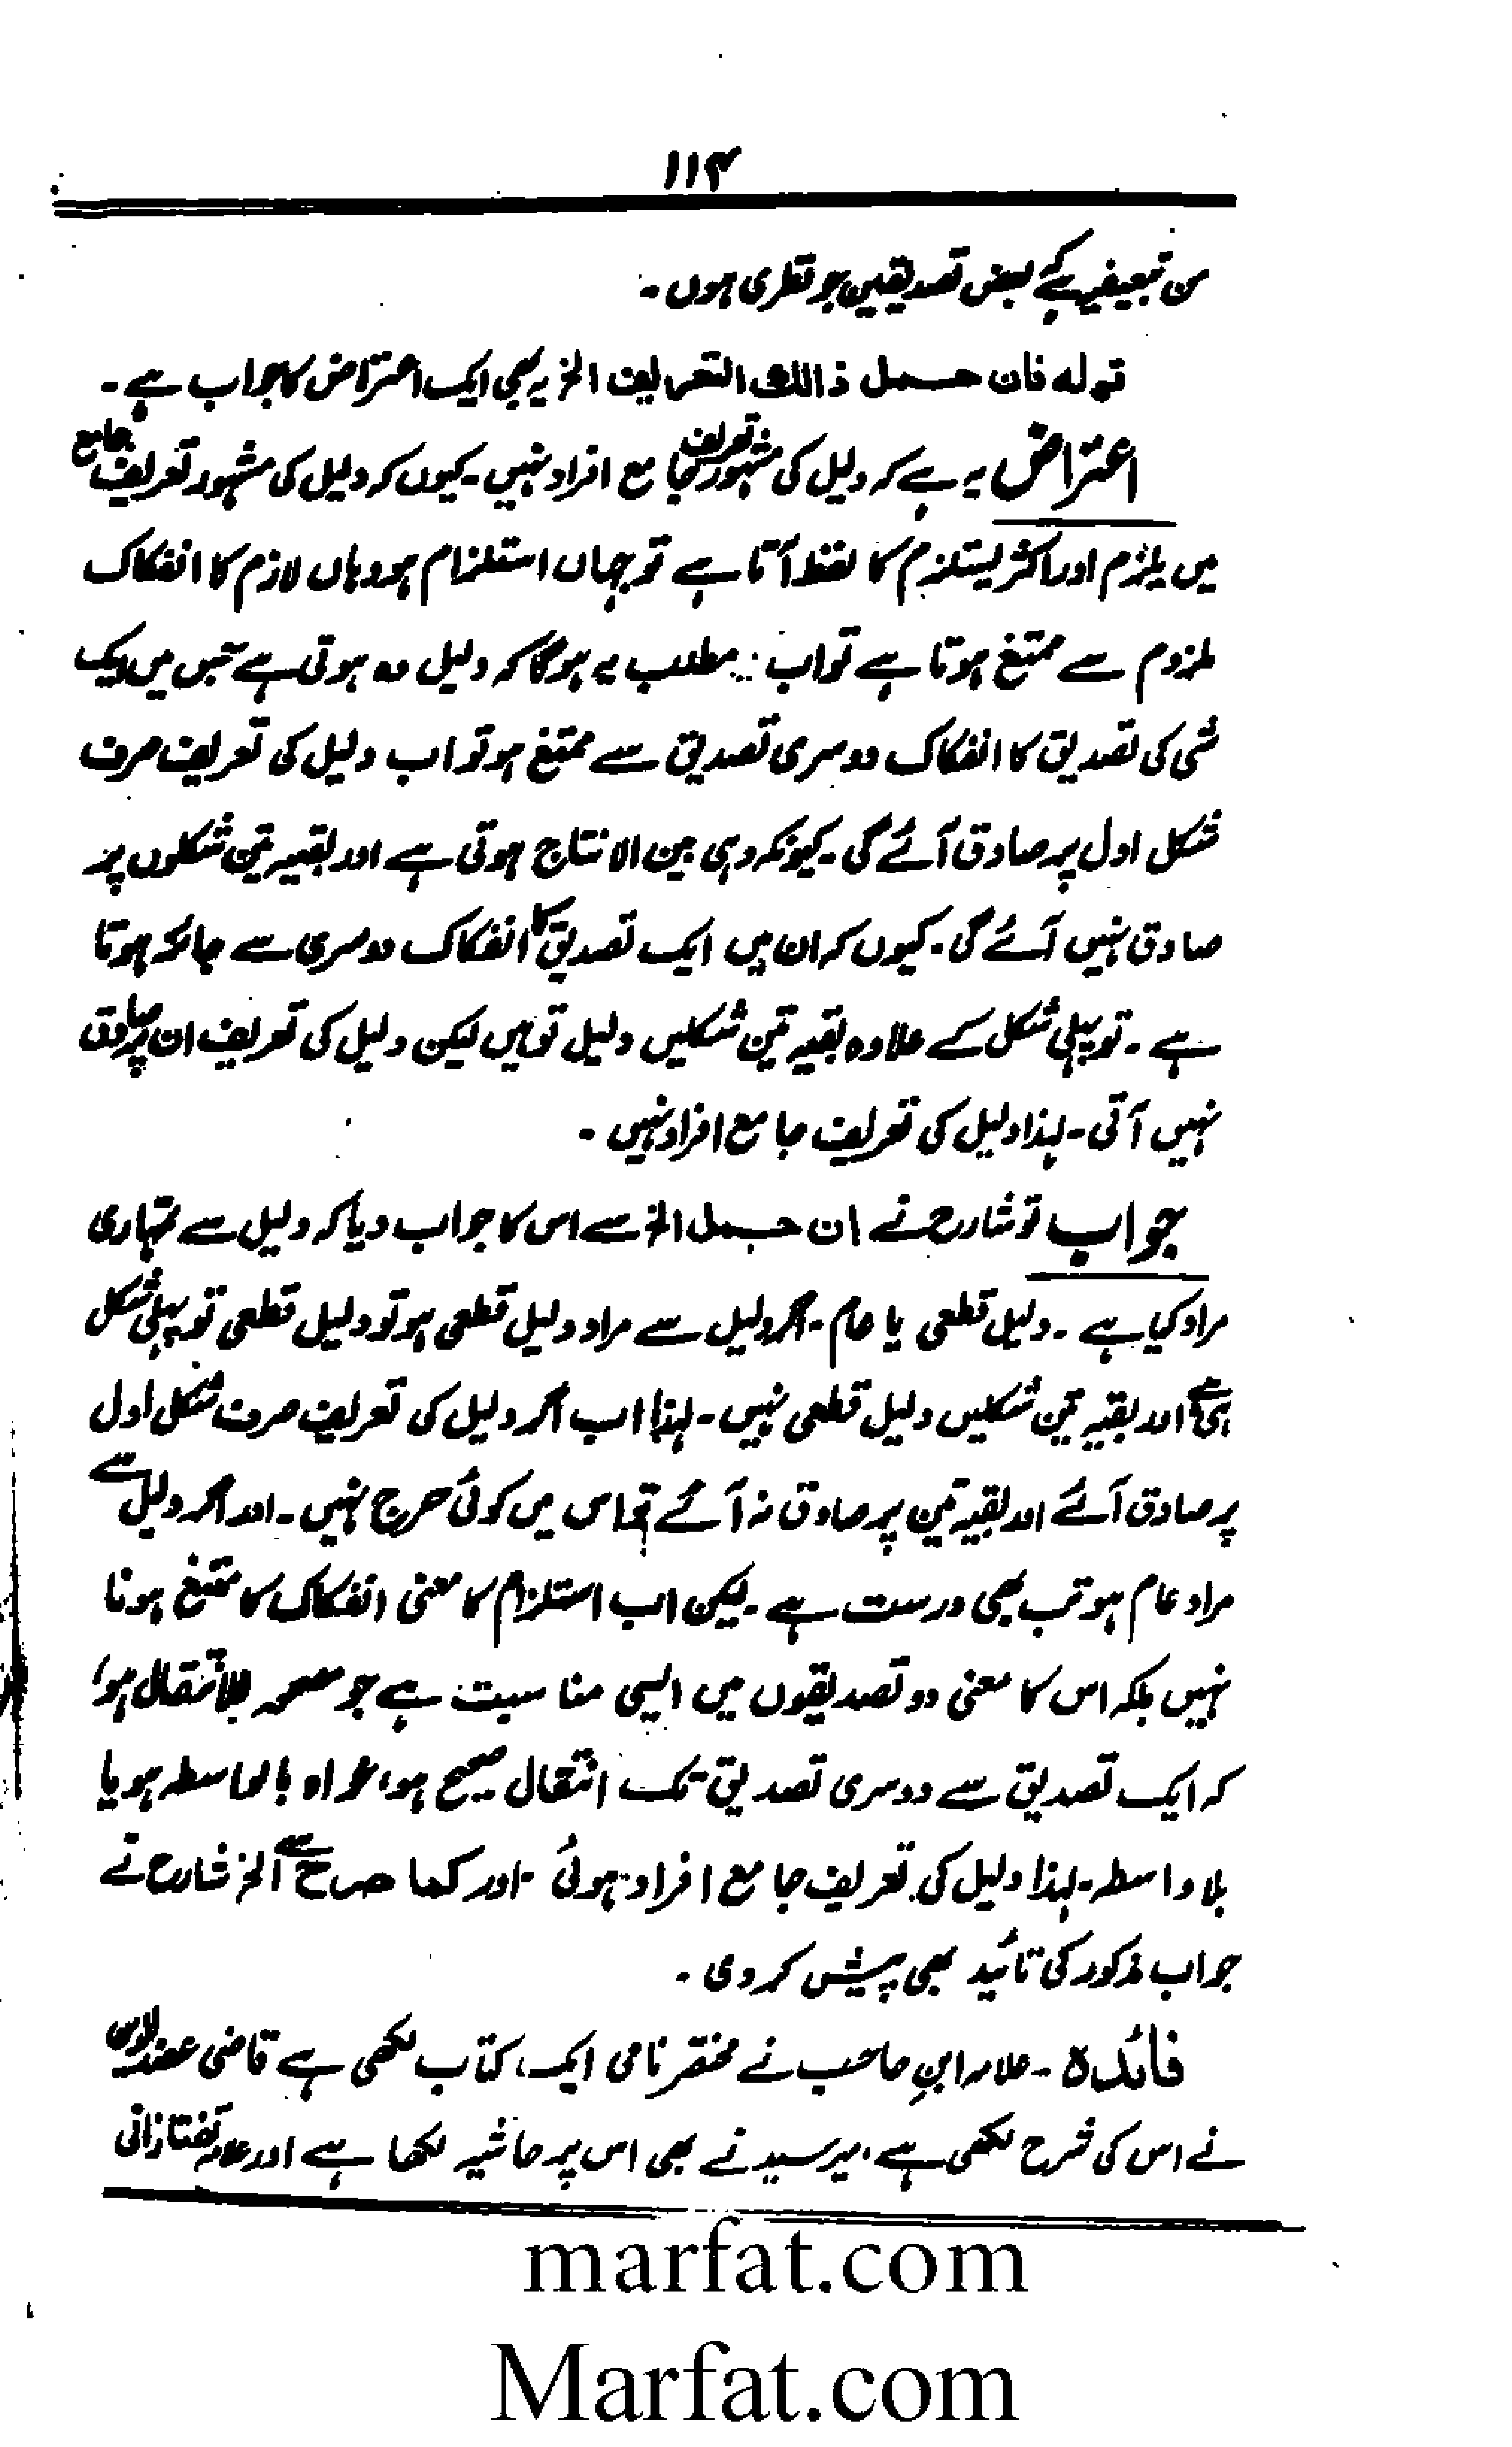 ۱۱۴
من تبعیضیہ ہے کہ بعض تصدیقیں جو نظری ہوں ۔
قولہ فان حمل ذالک التعریف الخ یہ بھی ایک اعتراض کا جواب ہے ۔
اعتراض یہ ہے کہ دلیل کی مشہور تعریف جامع افراد نہیں ۔ کیوں کہ دلیل کی مشہور تعریف جامع
میں یلزم اور اکثر یستلزم کا لفظ آتا ہے تو جہاں استلزام ہو وہاں لازم کا انفکاک
ملزوم سے ممتنع ہوتا ہے تو اب مطلب یہ ہوگا کہ دلیل وہ ہوتی ہے جس میں ایک
شی کی تصدیق کا انفکاک دوسری تصدیق سے ممتنع ہو تو اب دلیل کی تعریف صرف
شکل اول پر صادق آئے گی ۔ کیونکہ وہی بین الانتاج ہوتی ہے اور بقیہ تین شکلوں پر
صادق نہیں آئے گی ۔ کیوں کہ ان میں ایک تصدیق کا انفکاک دوسری سے جائز ہوتا
ہے ۔ تو پہلی شکل کے علاوہ بقیہ تین شکلیں دلیل تو ہیں لیکن دلیل کی تعریف ان پر صادق
نہیں آتی ۔ لہذا دلیل کی تعریف جامع افراد نہیں ۔
جواب تو شارح نے ان حمل الخ سے اس کا جواب دیا کہ دلیل سے تمہاری
مراد کیا ہے ۔ دلیل قطعی یا عام ۔ اگر دلیل سے مراد دلیل قطعی ہو تو دلیل قطعی تو پہلی شکل
ہی ہے اور بقیہ تین شکلیں دلیل قطعی نہیں ۔ لہذا اب اگر دلیل کی تعریف صرف شکل اول
پر صادق آئے اور بقیہ تین پر صادق نہ آئے تو اس میں کوئی حرج نہیں ۔ اور اگر دلیل سے
مراد عام ہو تب بھی درست ہے ۔ لیکن اب استلزام کا معنی انفکاک کا ممتنع ہونا
نہیں بلکہ اس کا معنی دو تصدیقوں میں ایسی مناسبت ہے جو مصحح للانتقال ہو،
کہ ایک تصدیق سے دوسری تصدیق تک انتقال صحیح ہو، خواہ بالواسطہ ہو یا
بلا واسطہ ۔ لہذا دلیل کی تعریف جامع افراد ہوئی ۔ اور کما صرح سے الخ شارح نے
جواب مذکور کی تائید بھی پیش کر دی ۔
فائدہ ۔ علامہ ابن حاجب نے مختصر نامی ایک کتاب لکھی ہے قاضی عضد
نے اس کی شرح لکھی ہے، میر سید نے بھی اس پر حاشیہ لکھا ہے اور علامہ تفتازانی
marfat.com
Marfat.com